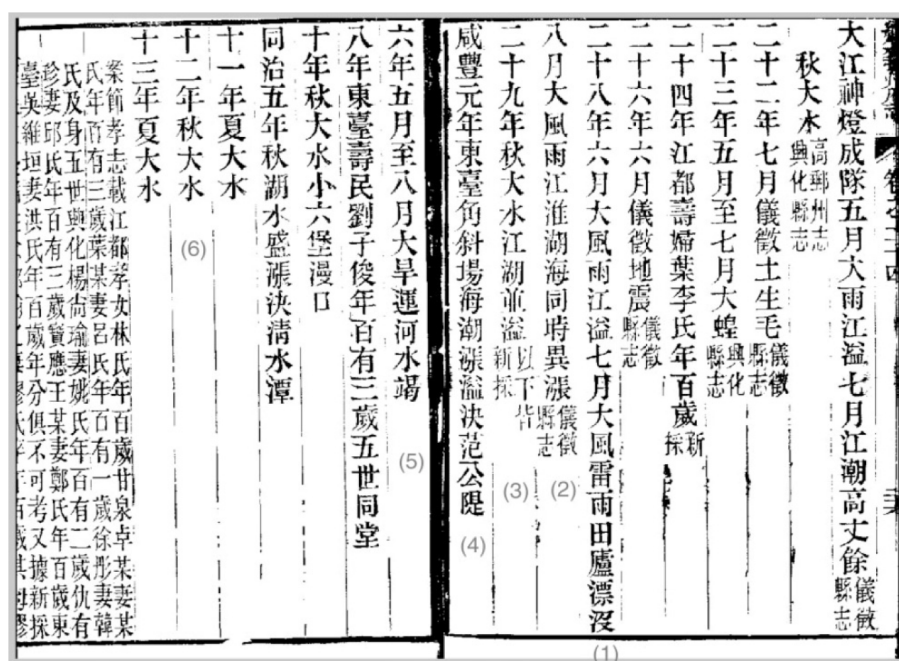 大江神燈成隊五月大雨江溢七月江潮高丈餘儀徵縣志
秋大水高郵州志興化縣志
二十二年七月儀徵土生毛儀徵縣志
二十三年五月至七月大蝗興化縣志
二十四年江都壽婦葉李氏年百歲新採
二十六年六月儀徵地震儀徵縣志
二十八年六月大風雨江溢七月大風雷雨田廬漂沒 (1)
八月大風雨江淮湖海同時異漲儀徵縣志 (2)
二十九年秋大水江湖並溢以下皆新採 (3)
咸豐元年東臺角斜場海潮漲溢決范公隄 (4)
六年五月至八月大旱運河水竭 (5)
八年東臺壽民劉子俊年百有三歲五世同堂
十年秋大水小六堡漫口
同治五年秋湖水盛漲決清水潭
十一年夏大水
十二年秋大水 (6)
十三年夏大水
案節孝志載江都孝女林氏年百歲甘泉卓某妻某
氏年百有三歲葉某妻呂氏年百有一歲徐彤妻韓
氏及身五世興化楊尚瑜妻姚氏年百有二歲仇有
珍妻邱氏年百有三歲寶應王某妻鄭氏年百歲東
臺吳維垣妻洪氏年百歲年分俱不可考又據新採